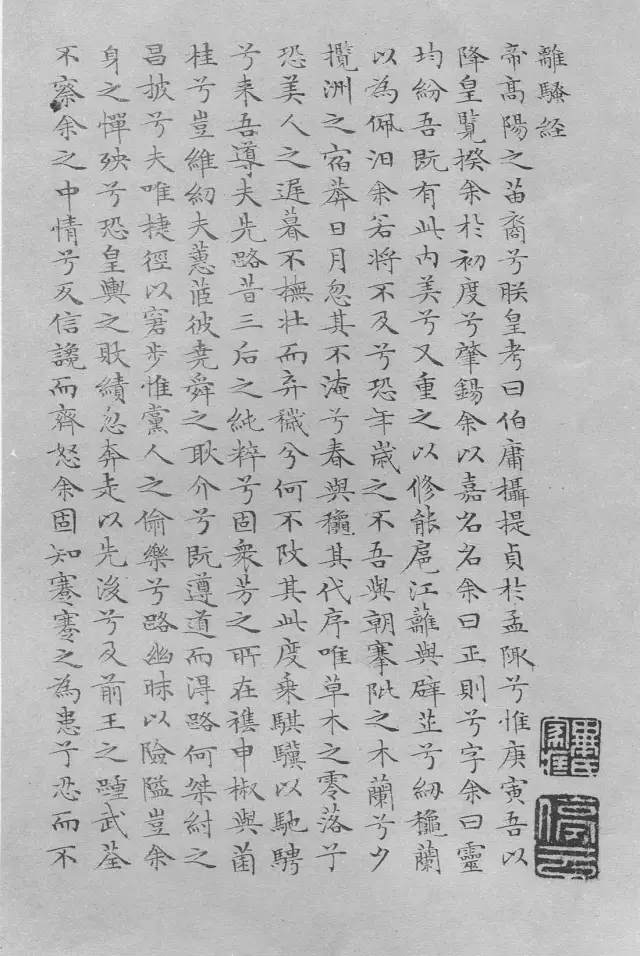 離騷經
帝髙陽之苗裔兮朕皇考曰伯庸攝提貞於孟陬兮惟庚寅吾以
降皇覽揆余於初度兮肇錫余以嘉名名余曰正則兮字余曰靈
均紛吾既有此內美兮又重之以修能扈江蘺與辟芷兮紉穐蘭
以為佩汨余若將不及兮恐年歲之不吾與朝搴阰之木蘭兮夕
攬洲之宿莽日月忽其不淹兮春與穐其代序唯草木之零落兮
恐美人之遲暮不撫壯而弃穢兮何不改其此度乘騏驥以馳騁
兮来吾導夫先路昔三后之純粹兮固衆芳之所在襍申椒與菌
桂兮豈維紉夫蕙茝彼堯舜之耿介兮既遵道而淂路何桀紂之
昌披兮夫唯捷徑以窘步惟黨人之偷樂兮路幽昧以險隘豈余
身之憚殃兮恐皇輿之敗績忽奔走以先後兮及前王之踵武荃
不察余之中情兮反信讒而齊怒余固知謇謇之為患兮忍而不